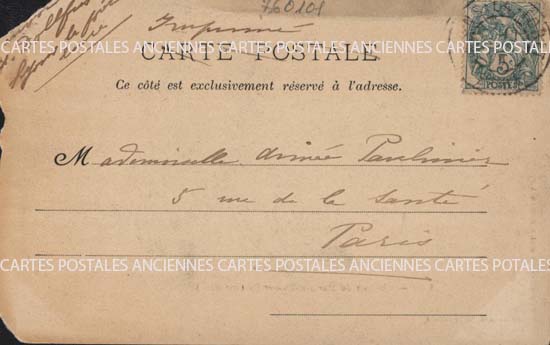 760101
Imprimé
CARTE POSTALE
Ce côté est exclusivement réservé à l'adresse.
POSTES
5
CARTES POSTALES ANCIENNES CARTES POSTALES ANCIENNES CARTES POSTALES ANCIENNES
Mademoiselle Aimée
5 rue de la Santé
Paris
CARTES POSTALES ANCIENNES CARTES POSTALES ANCIENNES CARTES POTALES ANCIENNES